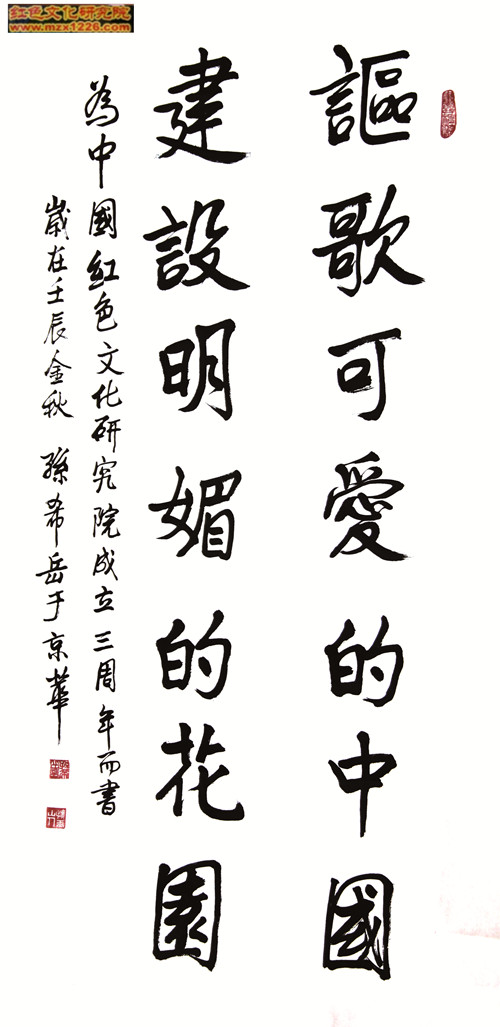 红色文化研究院
www.mzx1226.com
謳歌可愛的中國
建設明媚的花園
為中國紅色文化研究院成立三周年而書
歲在壬辰金秋 孫希岳于京華